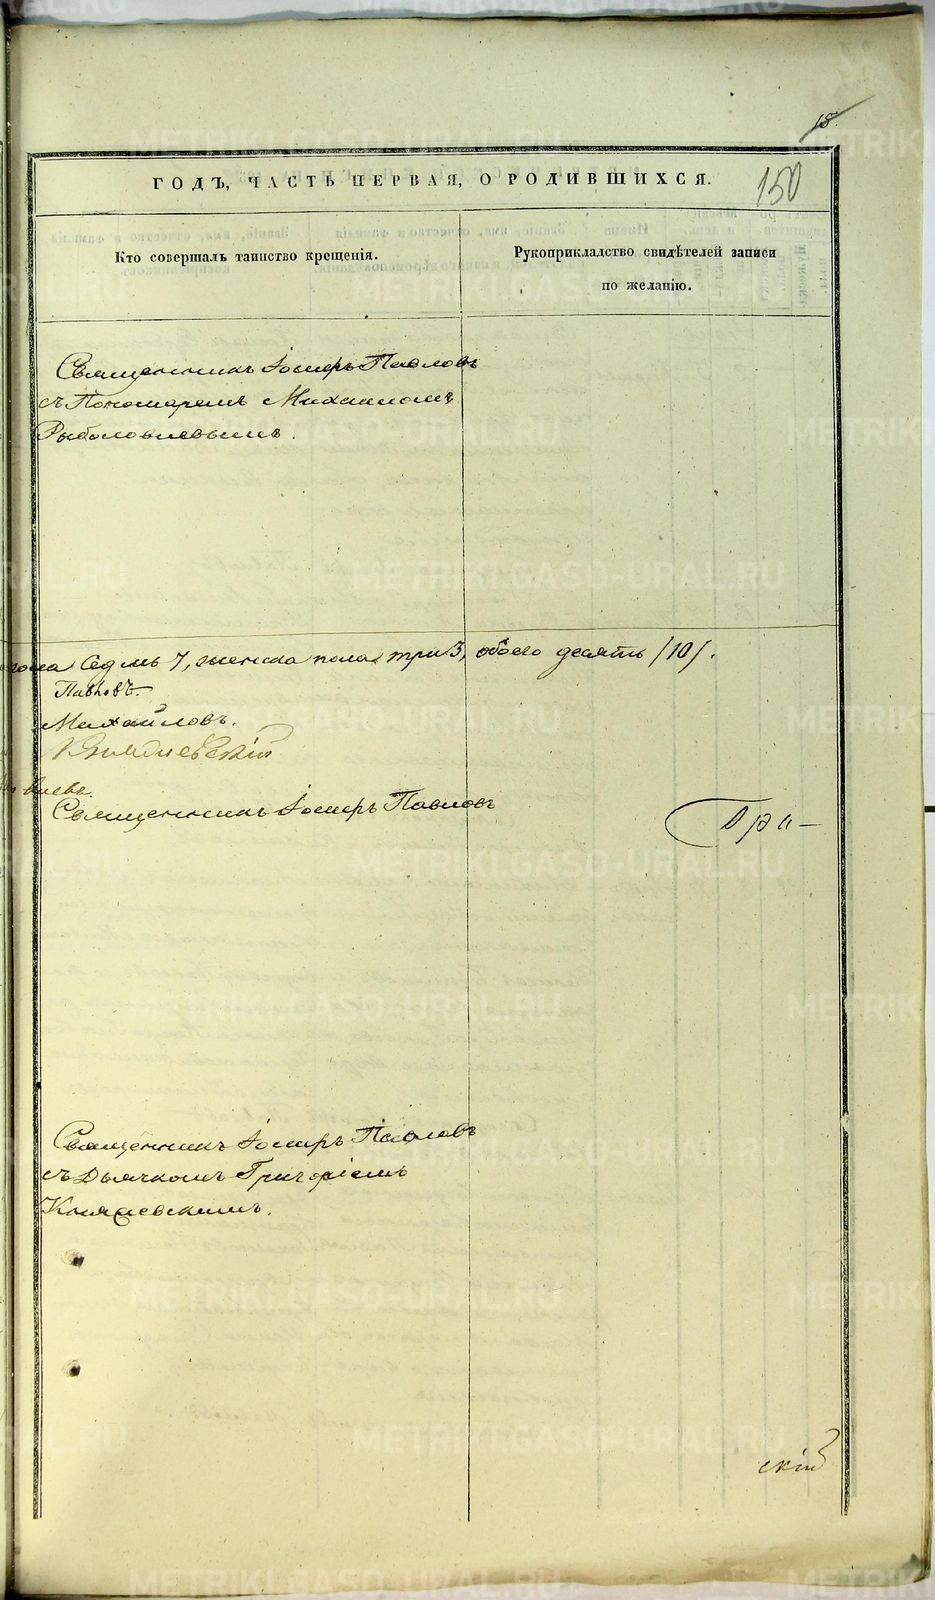 18.
ГОДЪ, ЧАСТЬ ПЕРВАЯ, О РОДИВШИХСЯ.
150
Кто совершалъ таинство крещенія.
Рукоприкладство свидѣтелей записи
по желанію.
Священникъ Іосифъ Павловъ
съ Пономаремъ Михаиломъ
Рыболовлевымъ.
пола седмь 7, женска пола три 3, обоего десять /10/.
Павловъ.
Михайловъ.
Священникъ Іосифъ Павловъ
Гри-
Священникъ Іосифъ Павловъ
съ Дьячкомъ Григоріемъ
Княжевскимъ.
скій
METRIKI.GASO-URAL.RU